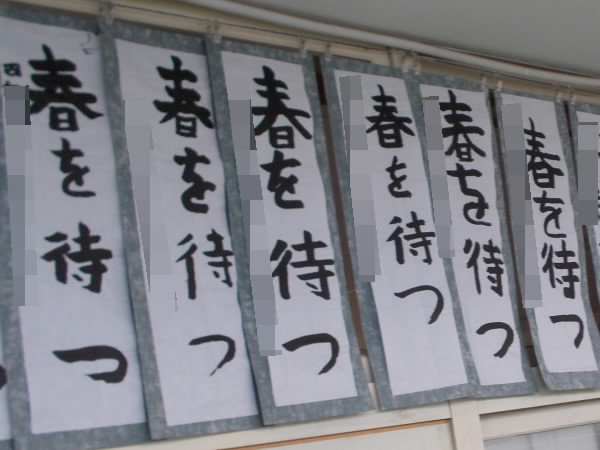 春を待つ
春を待つ
春を待つ
春を待つ
春を待つ
春を待つ